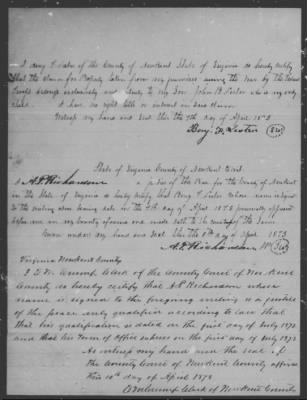 I Benj F Lister of the County of Newkent State of Virginia do hereby certify
that the claim for Property taken from my premises during the War by the Union
Troops belongs exclusively and solely to my Son John B Lister who is my only
child. I have no right title or interest in said claim.
Witness my hand and seal this the 5th day of April 1873
Benj. F. Lister (Seal)
State of Virginia County of Newkent to wit.
I A. P. Richardson a Justice of the Peace for the County of Newkent
in the State of Virginia do hereby certify that Benj F Lister whose name is signed
to the writing above bearing date on the 5th day of April 1873 personally appeared
before me in my County aforesaid and made oath to the contents of the same.
Given under my hand and seal this the 5th day of April 1873
A. P. Richardson JP (Seal)
Virginia Newkent County
I Clerk of the County Court of New Kent
County do hereby certify that A P Richardson whose
name is signed to the foregoing writing is a justice
of the peace duly qualified according to law that
that his qualification is dated on the first day of July 187
and that his term of office expires on the first day of July 187
As witness my hand and the seal of
the County Court of Newkent County affixed
this 10th day of April 1873
Clerk of Newkent County